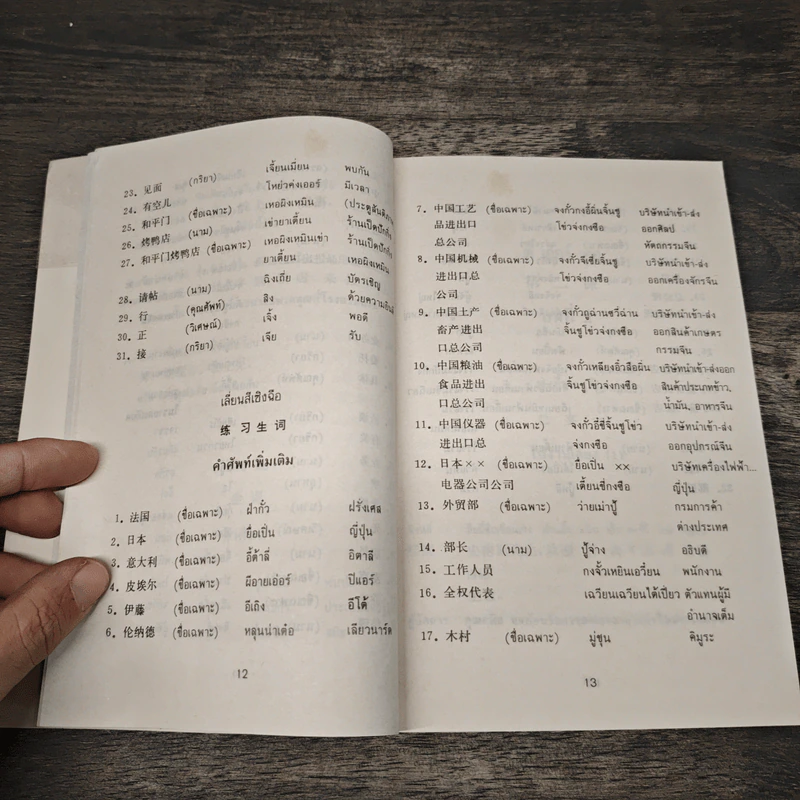 23. 见面 (กริยา) เจี้ยนเมี่ยน พบกัน
24. 有空儿 โหย่วค่งเออร์ มีเวลา
25. 和平门 (ชื่อเฉพาะ) เหอผิงเหมิน (ประตูสันติภาพ
26. 烤鸭店 (นาม) เข่ายาเตี้ยน ร้านเป็ดปักกิ่ง
27. 和平门烤鸭店 (ชื่อเฉพาะ) เหอผิงเหมินเข่า ร้านเป็ดปักกิ่ง
ยาเตี้ยน เหอผิงเหมิน
28. 请帖 (นาม) ฉิงเถี่ย บัตรเชิญ
29. 行 (คุณศัพท์) สิง ด้วยความยินดี
30. 正 (วิเศษณ์) เจิ้ง พอดี
31. 接 (กริยา) เจีย รับ
เลี่ยนสีเซิงฉือ
练习生词
คำศัพท์เพิ่มเติม
1. 法国 (ชื่อเฉพาะ) ฝ่ากั๋ว ฝรั่งเศส
2. 日本 (ชื่อเฉพาะ) ยื่อเปิ่น ญี่ปุ่น
3. 意大利 (ชื่อเฉพาะ) อี้ต้าลี่ อิตาลี
4. 皮埃尔 (ชื่อเฉพาะ) ผีอายเอ่อร์ ปิแอร์
5. 伊藤 (ชื่อเฉพาะ) อีเถิง อีโต้
6. 伦纳德 (ชื่อเฉพาะ) หลุนน่าเต๋อ เลียวนาร์ด
12
7. 中国工艺 (ชื่อเฉพาะ) จงกั๋วกงอี้ผิ่นจิ้นชู บริษัทนำเข้า-ส่ง
品进出口 โข่วจ่งกงซือ ออกศิลป
总公司 หัตถกรรมจีน
8. 中国机械 (ชื่อเฉพาะ) จงกั๋วจีเซี่ยจิ้นชู บริษัทนำเข้า-ส่ง
进出口总 โข่วจ่งกงซือ ออกเครื่องจักรจีน
公司
9. 中国土产 (ชื่อเฉพาะ) จงกั๋วถู่ฉ่านซวี่ฉ่าน บริษัทนำเข้า-ส่ง
畜产进出 จิ้นชูโข่วจ่งกงซือ ออกสินค้าเกษตร
口总公司 กรรมจีน
10. 中国粮油 (ชื่อเฉพาะ) จงกั๋วเหลียงอิ๋วสือผิ่น บริษัทนำเข้า-ส่งออก
食品进出 จิ้นชูโข่วจ่งกงซือ สินค้าประเภทข้าว,
口总公司 น้ำมัน, อาหารจีน
11. 中国仪器 (ชื่อเฉพาะ) จงกั๋วอี๋ชี่จิ้นชูโข่ว บริษัทนำเข้า-ส่ง
进出口总 จ่งกงซือ ออกอุปกรณ์จีน
12. 日本×× (ชื่อเฉพาะ) ยื่อเปิ่น ×× บริษัทเครื่องไฟฟ้า...
电器公司公司 เตี้ยนชี่กงซือ ญี่ปุ่น
13. 外贸部 (ชื่อเฉพาะ) ว่ายเม่าปู้ กรมการค้า
ต่างประเทศ
14. 部长 (นาม) ปู้จ่าง อธิบดี
15. 工作人员 กงจั้วเหยินเอวี๋ยน พนักงาน
16. 全权代表 เฉวียนเฉวียนไต้เปี่ยว ตัวแทนผู้มี
อำนาจเต็ม
17. 木村 (ชื่อเฉพาะ) มู่ชุน คิมูระ
13